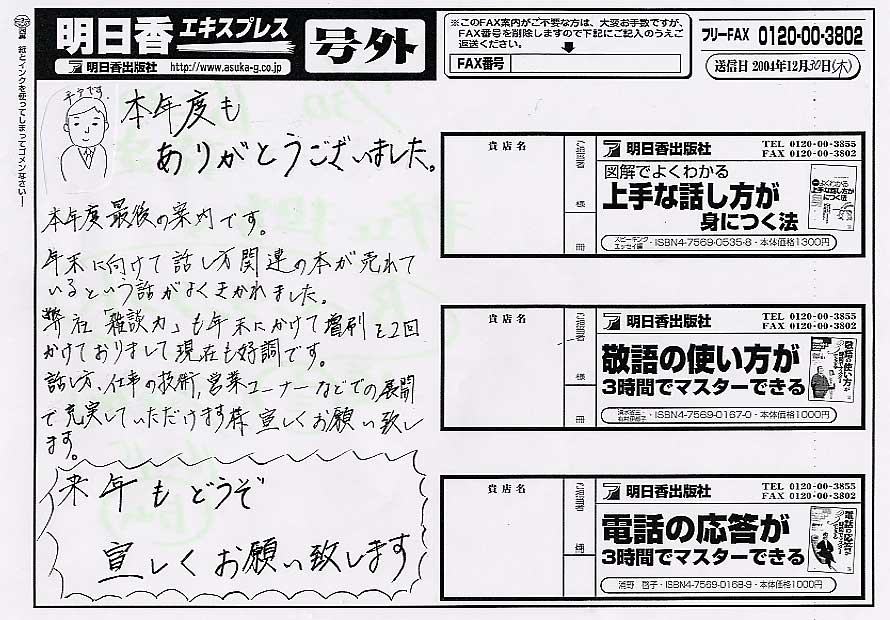 明日香エキスプレス
明日香出版社 http://www.asuka-g.co.jp
号外
※このFAX案内がご不要な方は、大変お手数ですが、
FAX番号を削除しますので下記にご記入のうえご
返送ください。
FAX番号
フリーFAX 0120-00-3802
送信日 2004年12月30日(木)
紙とインクを使ってしまってゴメンなさい!
本年度も
ありがとうございました。
本年度最後の案内です。
年末に向けて話し方関連の本が売れて
いるという話がよくきかれました。
弊社「雑談力」も年末にかけて増刷を2回
かけておりまして現在も好調です。
話し方、仕事の技術、営業コーナーなどでの展開
で充実していただけます様宜しくお願い致し
ます。
来年もどうぞ
宜しくお願い致します
貴店名
ご担当者
様
冊
明日香出版社
TEL 0120-00-3855
FAX 0120-00-3802
図解でよくわかる
上手な話し方が
身につく法
スピーキング
エッセイ編
・ISBN4-7569-0535-8・本体価格1300円
貴店名
ご担当者
様
冊
明日香出版社
TEL 0120-00-3855
FAX 0120-00-3802
敬語の使い方が
3時間でマスターできる
・ISBN4-7569-0167-0・本体価格1000円
貴店名
ご担当者
明日香出版社
TEL 0120-00-3855
FAX 0120-00-3802
電話の応答が
3時間でマスターできる
浦野 啓子・ISBN4-7569-0168-9・本体価格1000円